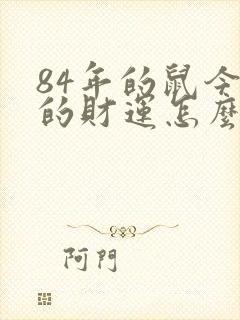 84年的鼠今
的財運怎麼
阿門